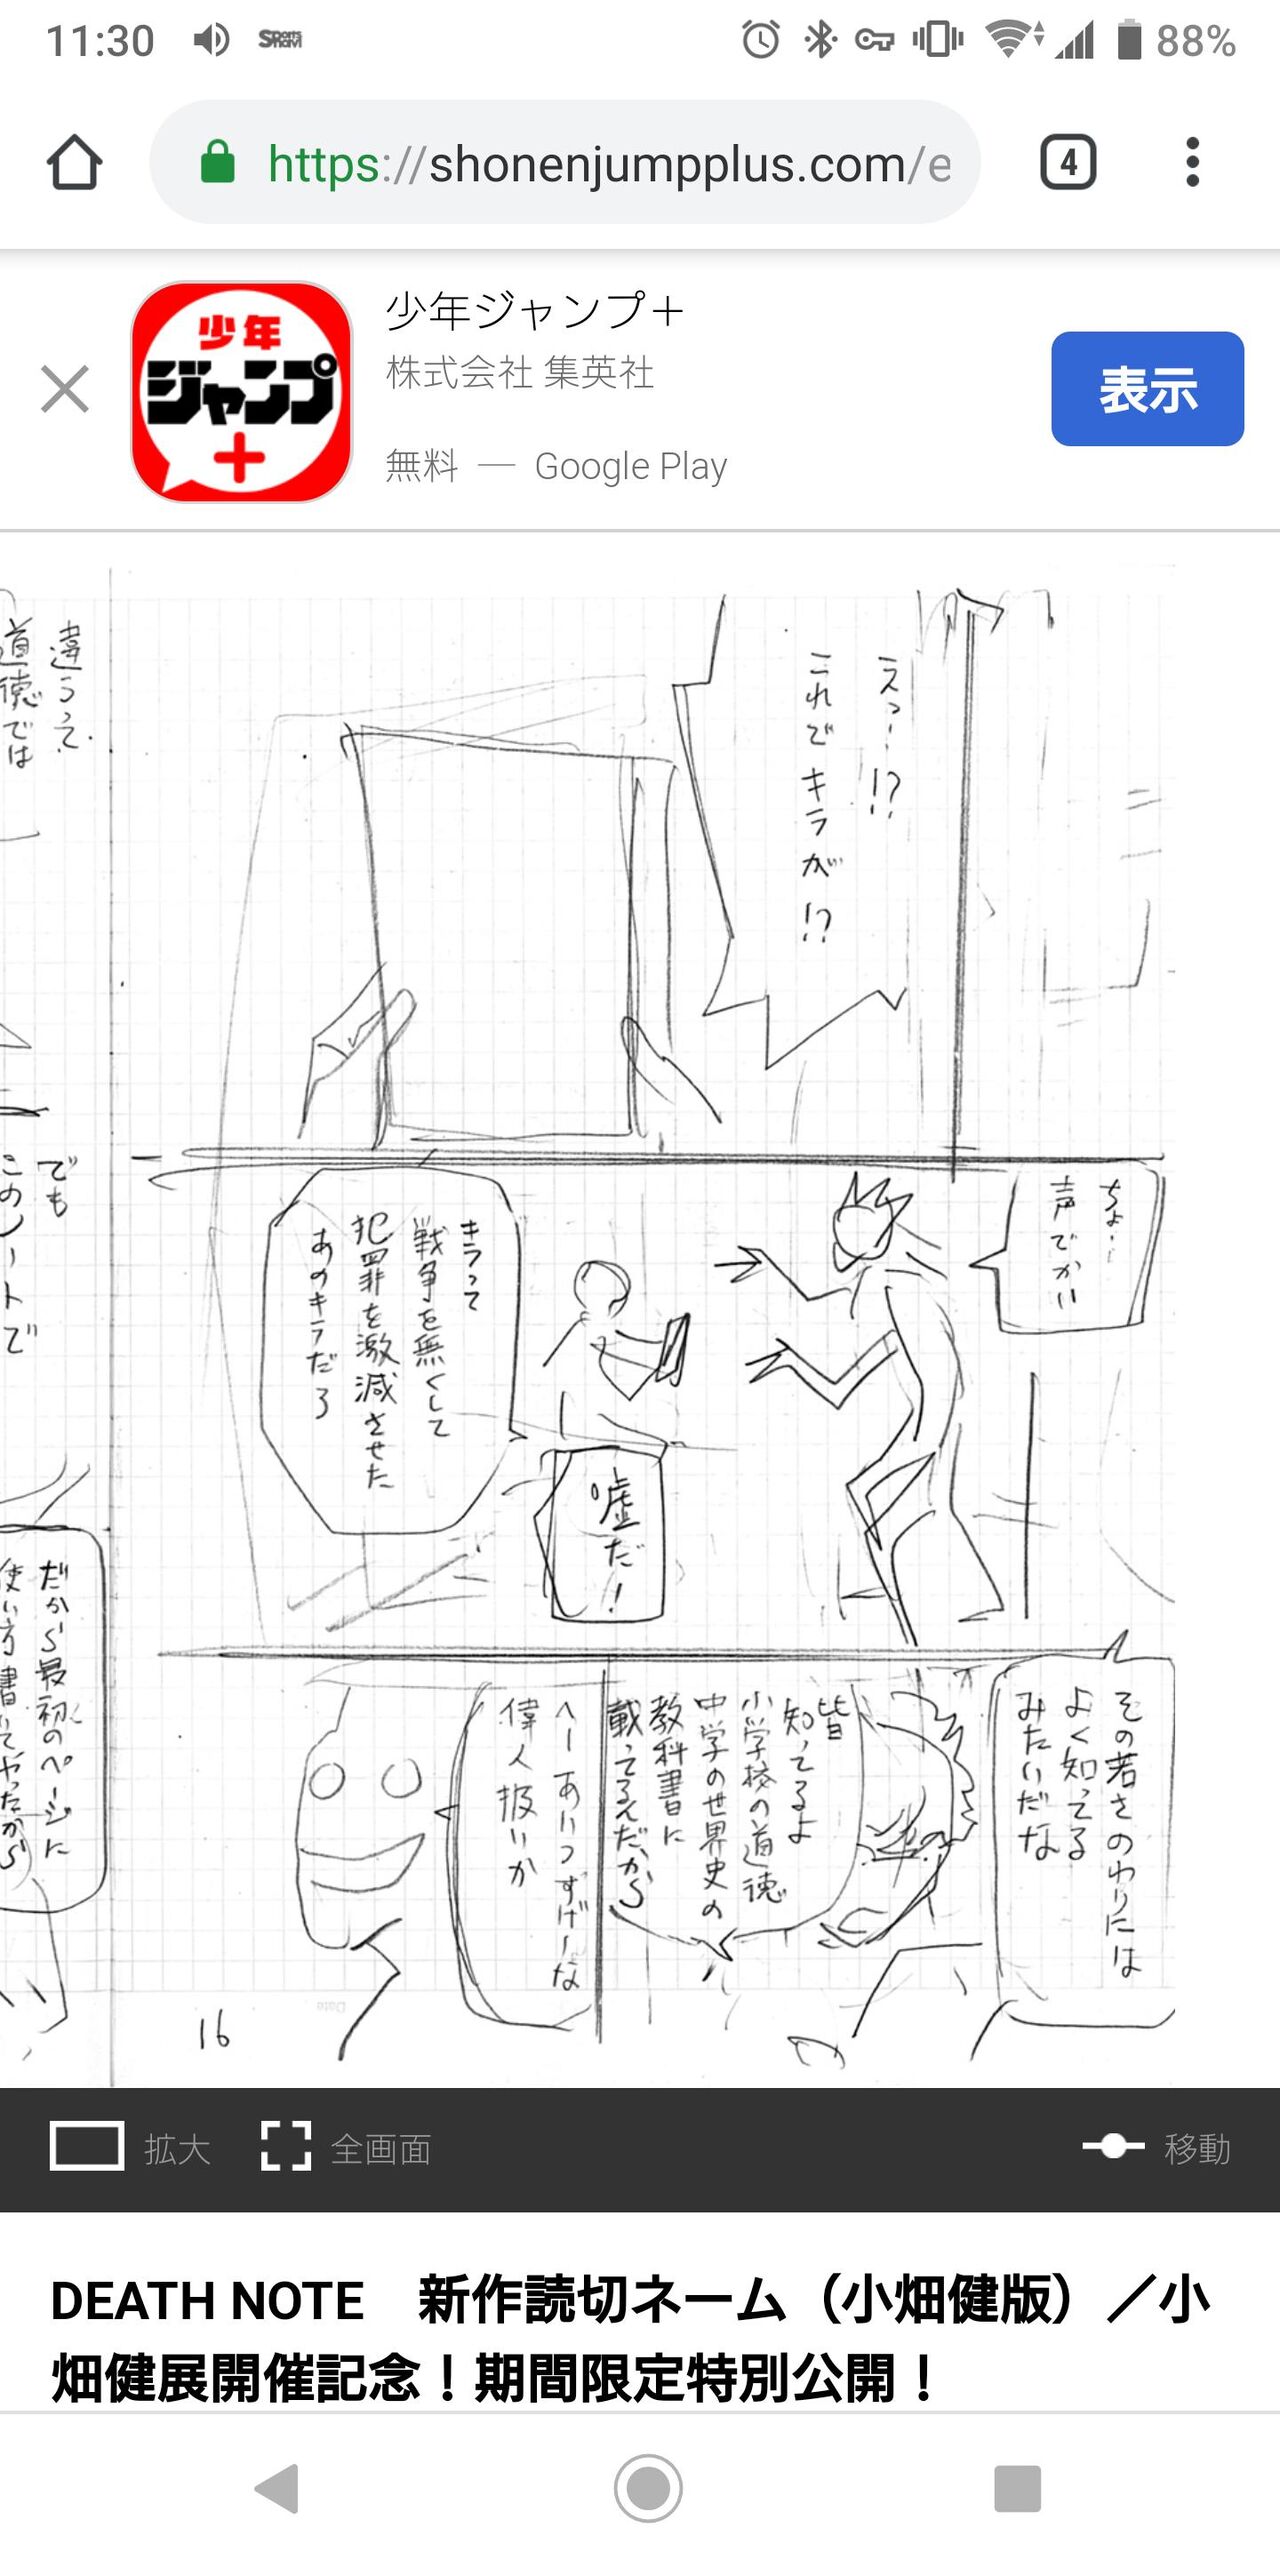 11:30
Sports
navi
88%
https://shonenjumpplus.com/e
4
少年
ジャンプ
+
少年ジャンプ＋
株式会社 集英社
無料 — Google Play
表示
えっ…!?
これでキラが!?
ちょ…
声でかい
キラって
戦争を無くして
犯罪を激減させた
あのキラだろ
嘘だ!
その若さのわりには
よく知ってる
みたいだな
皆
知ってるよ
小学校の道徳
中学の世界史の
教科書に
載ってるんだから
へー あいつすげーな
偉人扱いか
16
Date
違うって.
道徳では
でも
このノートで
だから最初のページに
使い方書いてやったから
拡大
全画面
移動
DEATH NOTE　新作読切ネーム（小畑健版）／小
畑健展開催記念！期間限定特別公開！